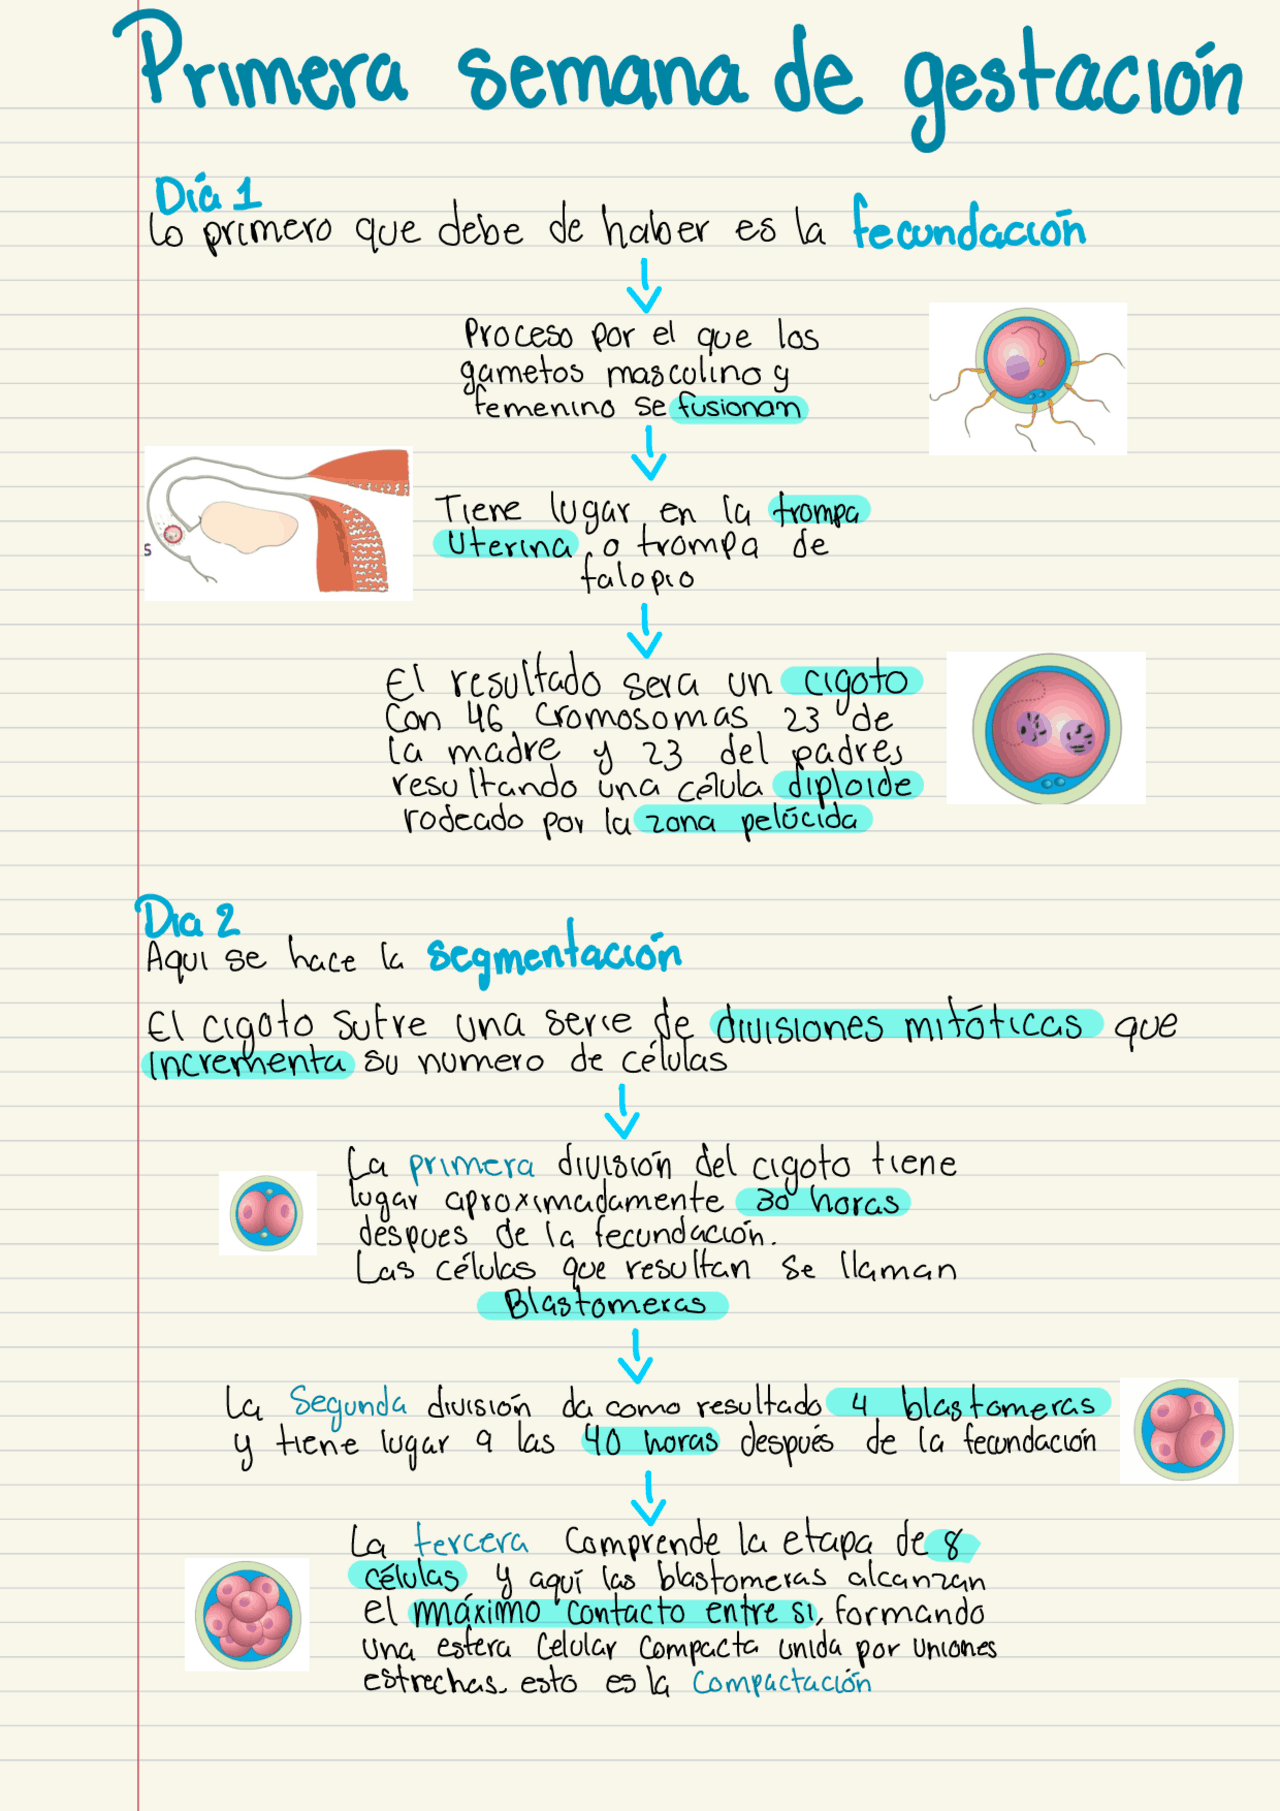 Primera semana de gestación
Día 1
Lo primero que debe de haber es la fecundación
Proceso por el que los
gametos masculino y
femenino se fusionan
Tiene lugar en la trompa
Uterina o trompa de
falopio
S
El resultado sera un cigoto
Con 46 Cromosomas 23 de
la madre y 23 del padres
resultando una celula diploide
rodeado por la zona pelúcida
Dia 2
Aqui se hace la segmentación
El cigoto sufre una serie de divisiones mitóticas que
incrementa su numero de células
La primera división del cigoto tiene
lugar aproximadamente 30 horas
despues de la fecundación.
Las células que resultan se llaman
Blastomeras
La Segunda división da como resultado 4 blastomeras
y tiene lugar a las 40 horas después de la fecundación
La tercera Comprende la etapa de 8
células y aquí las blastomeras alcanzan
el máximo contacto entre si, formando
una esfera Celular Compacta unida por Uniones
estrechas. esto es la Compactación